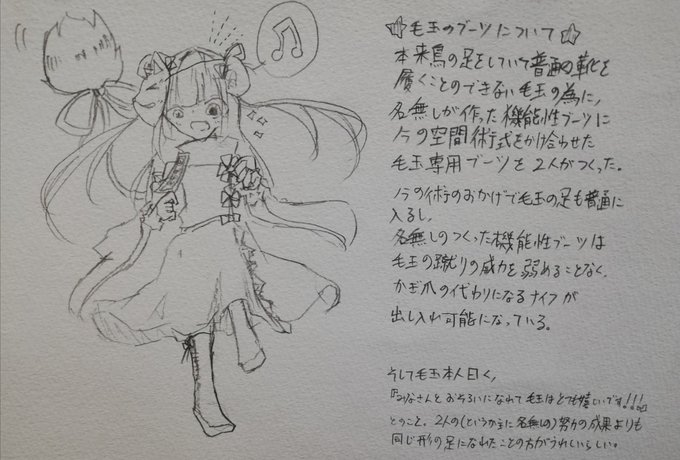 ☆毛玉のブーツについて☆
本来鳥の足をしていて普通の靴を
履くことのできない毛玉の為に、
名無しが作った機能性ブーツに
ノラの空間術式をかけ合わせた
毛玉専用ブーツを2人がつくった。
ノラの術のおかげで毛玉の足も普通に
入るし、
名無しのつくった機能性ブーツは
毛玉の蹴りの威力を弱めることなく、
かぎ爪の代わりになるナイフが
出し入れ可能になっている。
そして毛玉本人曰く、
『みなさんとおそろいになれて毛玉はとても嬉しいです!!!』
とのこと。2人の(というか主に名無しの)努力の成果よりも
同じ形の足になれたことの方がうれしいらしい。